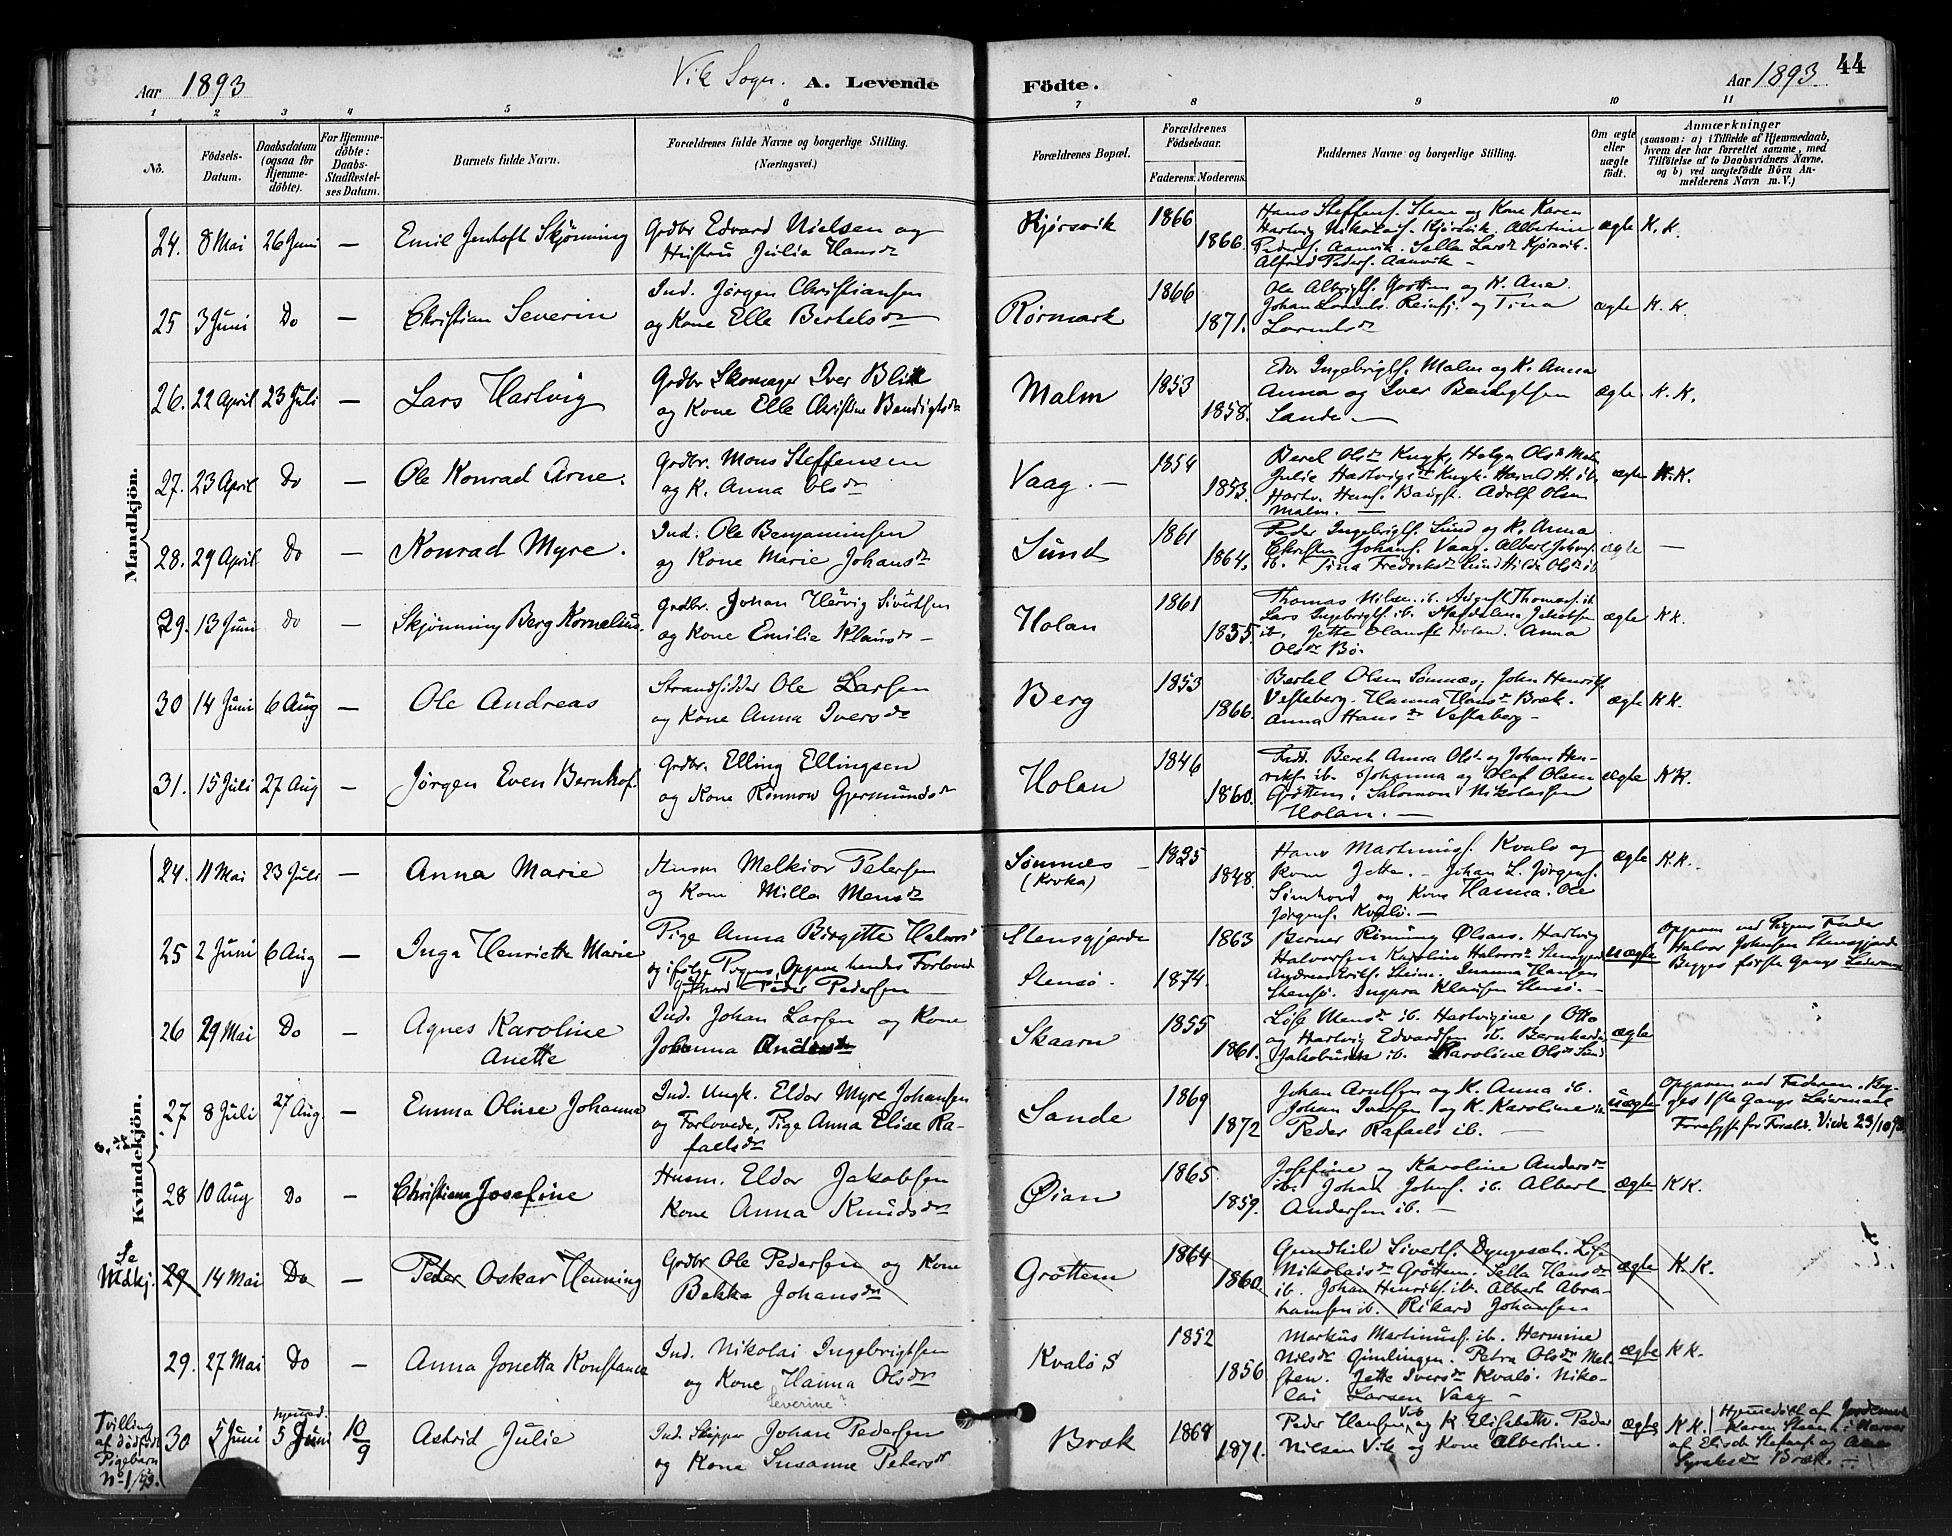 Aar 1893
Vik Sogn.
A. Levende Födte.
Aar 1893
44
1 2 3 4 5 6 7 8 9 10 11
No.
Födsels-Datum.
Daabsdatum (ogsaa for Hjemme-döbte).
For Hjemme-döbte: Daabs-Stadfæstel-ses Datum.
Barnets fulde Navn.
Forældrenes fulde Navne og borgerlige Stilling.
(Næringsvei.)
Forældrenes Bopæl.
Forældrenes Födselsaar.
Faderens. Moderens.
Faddernes Navne og borgerlige Stilling.
Om ægte eller uægte födt.
Anmærkninger
(saasom: a) i Tilfælde af Hjemmedaab,
hvem der har forrettet samme, med
Tilföielse af to Daabsvidners Navne,
og b) ved uægtefödte Börn An-
melderens Navn m. V.)
Mandkjön.
24. 8 Mai 26 Juni — Emil Jenhoft Skjønning
Grdbr Edvard Nielsen og
Hustru Julia Hansdr
Kjørsvik 1866 1866.
Hans Steffens. Stene og Kone Karen
Hartvig Nikolais. Kjørsvik. Albertine
Peders. Aanvik. Sella Larsdr Kjørsvik.
Alfred Peders. Aanvik —
ægte K. K.
25 3 Juni Do — Christian Severin
Ind. Jørgen Christiansen
og Kone Elle Bertelsdr
Rørmark 1866 1871.
Ole Albrigts. Grøttem og K. Ane.
ægte K. K.
26. 22 April 23 Juli — Lars Hartvig
Grdbr Skomager Iver Blik
og Kone Elle Christine Bendigtsdr
Malm 1853 1858.
Edv Ingebrigts. Malm og K. Anna
Anna og Iver Bendigtsen
Sande —
ægte K. K.
27. 23 April Do — Ole Konrad Arne.
Grdbr. Mons Steffensen
og K. Anna Olsdr
Vaag. — 1854 1853.
Malm. —
ægte K.K.
28. 29 April Do — Konrad Myre.
Ind. Ole Benjaminsen
og Kone Marie Johansdr
Sund 1861 1864.
Peder Ingebrigts. Sund og K. Anna
Christen Johans. Vaag. Albert Johns.
ib. Tina Fredriksdr Sund Hilda Olsdr ib
ægte —
29. 13 Juni Do — Skjønning Berg Kornelius.
Grdbr. Johan Hervig Sivertsen
og Kone Emilie Klausdr —
Holan 1861 1855.
Thomas Nilsen ib. August Thomass. ib
Lars Ingebrigts ib. Magdalena Jakobsen
ib. Jette Olausdr Holan. Anna
Olsdr Bø.
ægte K K.
30 14 Juni 6 Aug — Ole Andreas
Strandsidder Ole Larsen
og Kone Anna Iversdr
Berg 1853 1866.
Bertel Olsen Sømnæs, John Henriks.
Vestaberg. Hanna Hansdr Bræk.
Anna Hansdr Vestaberg —
ægte K K.
31. 15 Juli 27 Aug — Jørgen Even Bernhof.
Grdbr. Elling Ellingsen
og Kone Rønnow Gjermundsdr
Holan 1846 1860.
rikss ib. Johanna og Olaf Olsen
Grøttem. Salomon Nikolaisen
Holan. —
ægte K K.
Kvindekjön.
24. 11 Mai 23 Juli — Anna Marie
Husm Melkior Petersen
og Kone Milla Monsdr
Sømnæs — (Kroka) 1835 1848.
Hans Martinus. Kvalø og
Kone Jette. — Johan L. Jørgens.
Sømhovd og Kone Hanna. Ole
Jørgens. Kvalø. —
ægte K.K.
25 2 Juni 6 Aug — Inga Henriette Marie
Pige Anna Birgitte Halvorsdr
og ifølge Pigens Opgave hendes Forlovede
Peder Pedersen
Stensgjerde 1863
Stensø. 1874.
Berner Rønning Olsaas. Hartvig
Halvorsen Karoline Halvorsdr Stensgjerd
Stensø. Ingvra Klausen Stensø. —
uægte
Opgaven ved Pigens Fader
Halvor Johnsen Stensgjerde
Begges første Gangs Leiermaal
26 29 Mai Do — Agnes Karoline Anette
Ind. Johan Larsen og Kone
Johanna Andersdr
Skaarn 1855 1861.
Lise Monsdr ib. Hartvigine, Otto
og Hartvig Edvardsen ib. Bernhardine
Jakobusdr ib. Karoline Olsdr Sund
ægte
27 8 Juli 27 Aug. — Emma Oline Johanna
Ind. Ungk. Eldor Myre Johansen
og Forlovede, Pige Anna Elise Ra-
faelsdr
Sande 1869 1872
Johan Arntsen og K. Anna ib.
Johan Iversen og K. Karoline ib
Peder Rafaels ib. —
uægte
Opgaven ved Faderen. Beg-
ges 1ste Gangs Leiermaal
Forelyst for Foræld. Viede 23/10 93
28 10 Aug Do — Christiana Josefine
Husm. Eldor Jakobsen
Kone Anna Knudsdr
Øian 1865. 1859.
Josefine og Karoline Andersdr
ib. Johan Johns. ib. Albert
Andersen ib. —
ægte K K.
Se Mdkj. 29 14 Mai Do — Peder Oskar Henning
Grdbr Ole Pedersen og Kone
Bekka Johansdr
Grøttem 1864 1860.
Gundhild Siverts. Dyngeseter. Lise
Nikolaisdr Grøttem. Sella Hansdr
ib. Johan Henriks. ib. Albert Abra-
hamsen ib. Rikard Johansen
ægte K. K.
29. 27 Mai Do — Anna Jonetta Konstance
Ind. Nikolai Ingebrigtsen
og Kone Hanna Olsdr
Severine?
Kvalø S 1852 1856
Markus Martinus. ib. Hermine
Nilsdr Gimlingen. Petra Olsdr Mel-
sten. Jette Iversdr Kvalø. Niko-
lai Larsen Vaag —
ægte K K.
Tvilling af dödfödt Pigebarn No 1/93.
30 5 Juni hjemmed. 5 Juni 10/9 Astrid Julie
Ind. Skipper Johan Pedersen
og Kone Susanne Petersdr
Bræk 1868 1871.
Peder Hansen Vik og K Elisabeth. Peder
Nilsen Vik og Kone Albertine.
ægte K K.
Hjemmedöbt af Jordemor
Karen Steen i Nærvær
af Elisabe Stefans. og Ane
Bræk. —